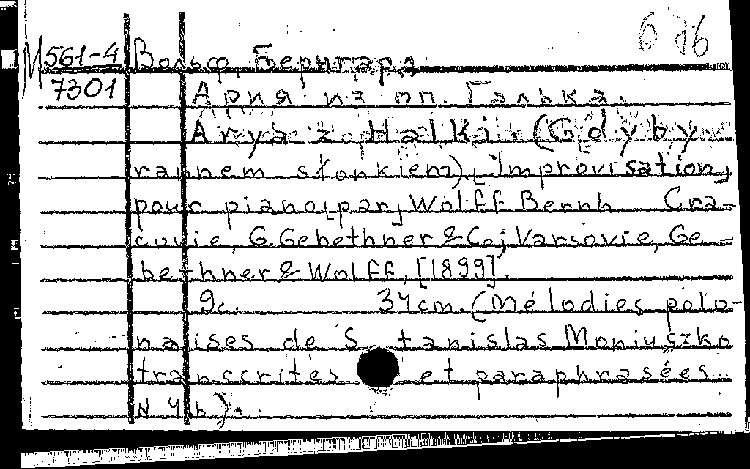 М 561-4 Вольф, Бернгард.
7301 Ария из оп. Галька.
Arya z Halki. (Gdyby
rannem słonkiem). Improvisation
pour piano par Wolff Bernh. Cra-
covie, G. Gebethner & C°; Varsovie, Ge-
bethner & Wolff, [1899].
9с. 34 cm. (Mélodies polo-
naises de Stanislas Moniuszko
transcrites et paraphrasées.
N 4b).